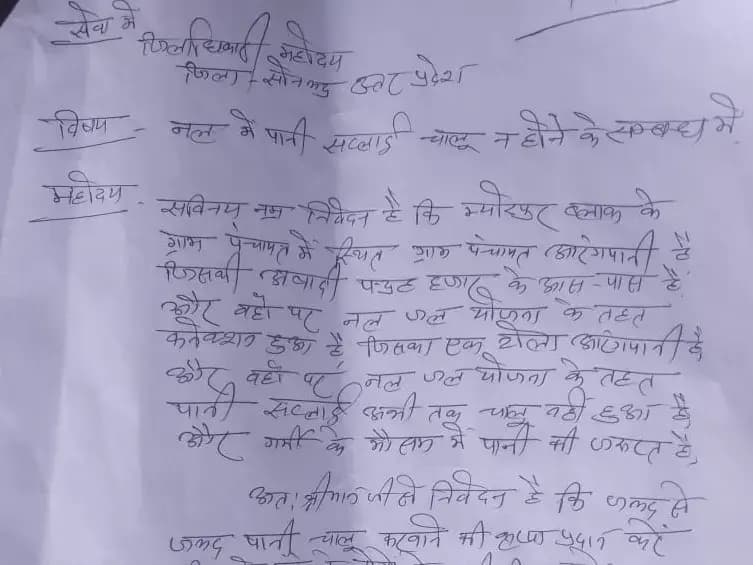 सेवा में
जिलाधिकारी महोदय
जिला - सोनभद्र उत्तर प्रदेश
विषय - नल में पानी सप्लाई चालू न होने के सम्बन्ध में
महोदय - सविनय नम्र निवेदन है कि म्योरपुर ब्लाक के
ग्राम पंचायत में स्थित ग्राम पंचायत आरंगपानी है
जिसकी अबादी पन्द्रह हजार के आस-पास है
और वहाँ पर नल जल योजना के तहत
कनेक्शन हुआ है जिसका एक टोला आरंगपानी है
और वहाँ पर नल जल योजना के तहत
पानी सप्लाई अभी तक चालू नही हुआ है
और गर्मी के मौसम में पानी की जरूरत है,
अतः श्रीमान जी से निवेदन है कि जल्द से
जल्द पानी चालू करवाने की कृपा प्रदान करें